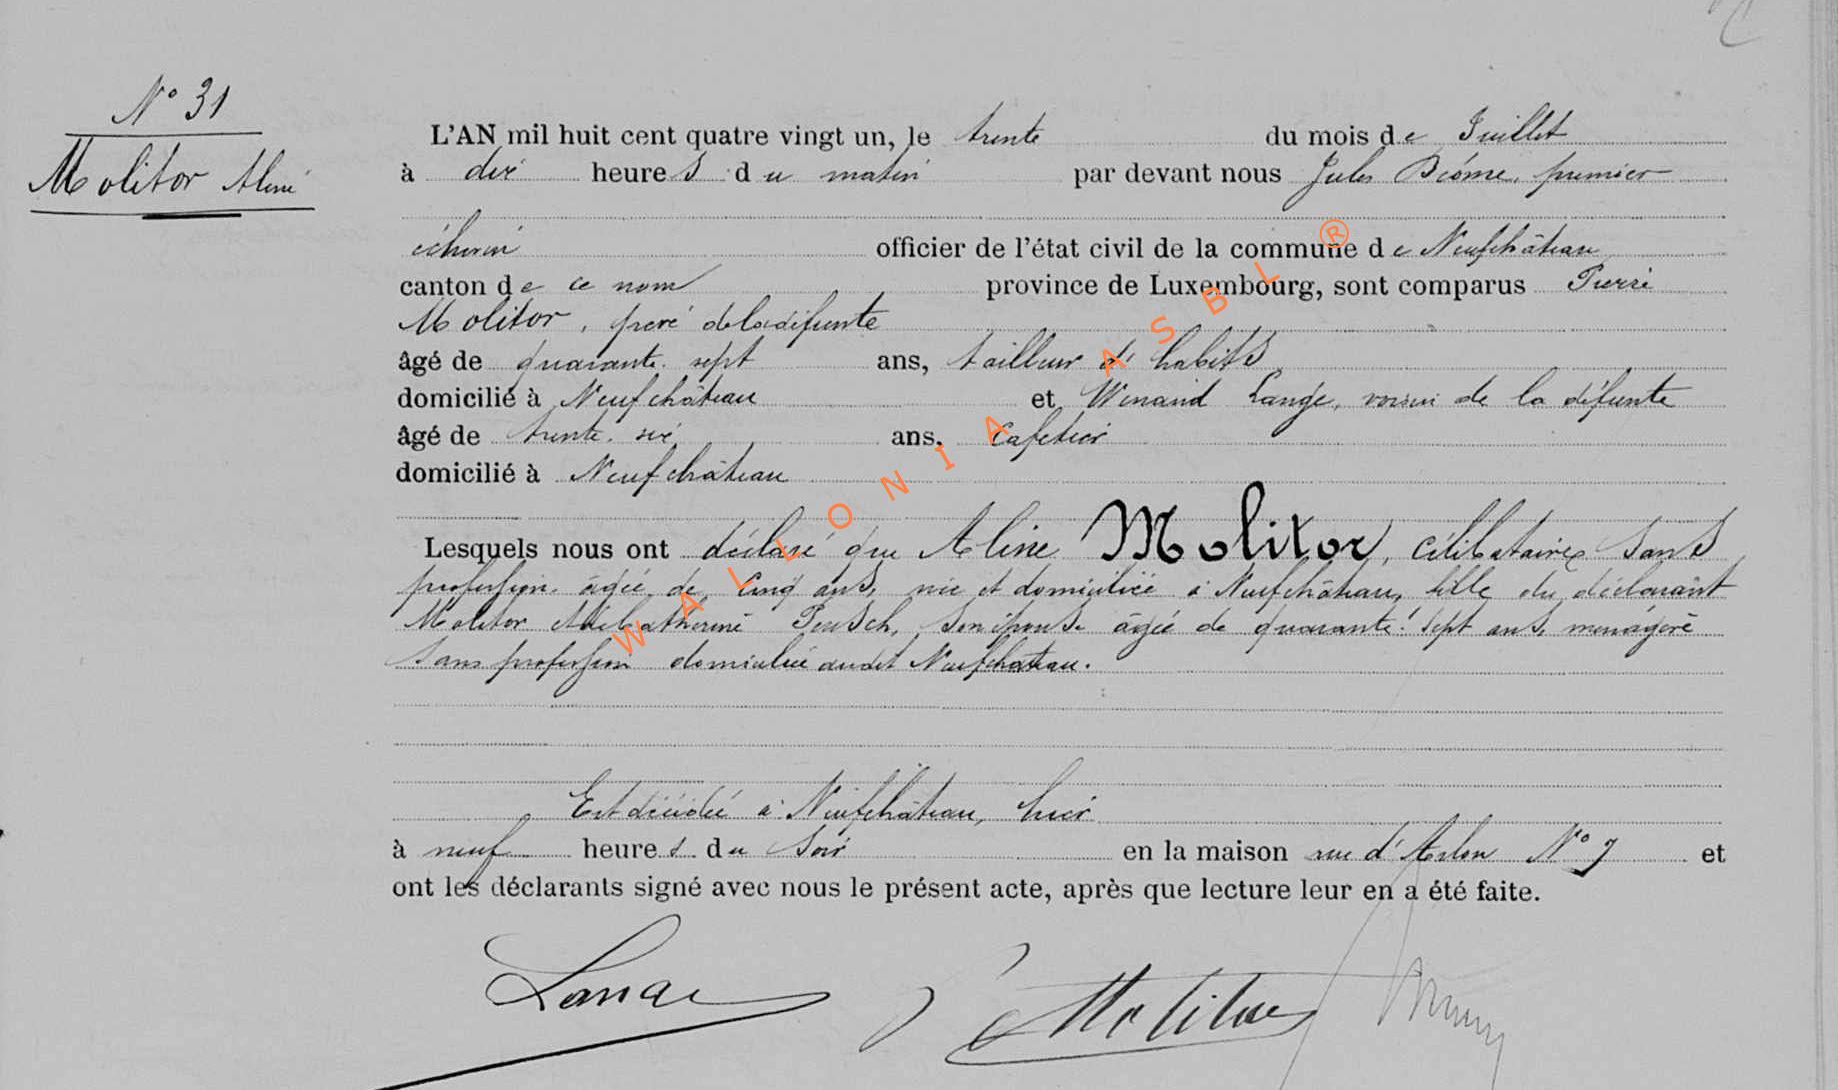 N° 31
Molitor Aline
L'AN mil huit cent quatre vingt un, le trente du mois de Juillet
à dix heures du matin par devant nous Jules premier
échevin officier de l'état civil de la commune de Neufchâteau
canton de ce nom province de Luxembourg, sont comparus Pierre
Molitor, père de la défunte
âgé de quarante sept ans, tailleur d'habits
domicilié à Neufchâteau et Winand Lange, voisin de la défunte
âgé de trente six ans, cafetier
domicilié à Neufchâteau
Lesquels nous ont déclaré que Aline Molitor, célibataire sans
profession âgée de cinq ans, née et domiciliée à Neufchâteau, fille du déclarant
Molitor Catherine son épouse âgée de quarante sept ans, ménagère
sans profession domiciliée audit Neufchateau.
Est décédée à Neufchâteau, hier
à neuf heures du soir en la maison rue d'Arlon N° 7 et
ont les déclarants signé avec nous le présent acte, après que lecture leur en a été faite.
Lange Molitor
WALLONIA ASBL ®